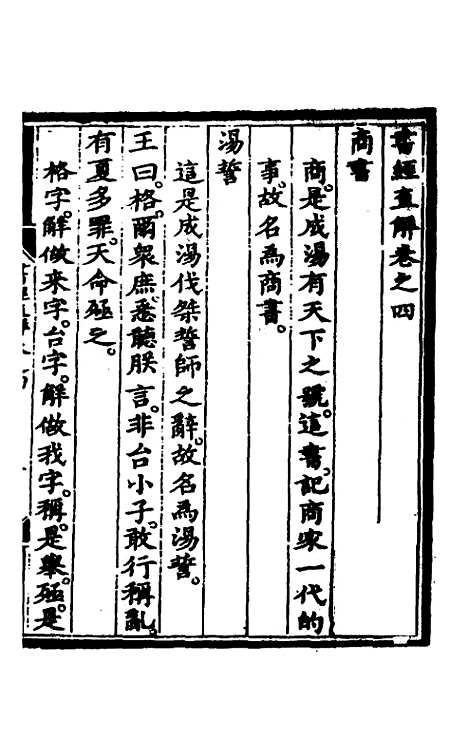 書經直解卷之四
商書
商。是成湯有天下之號。這書。記商家一代的
事。故名為商書。
湯誓
這是成湯伐桀誓師之辭。故名為湯誓。
王曰。格。爾衆庶。悉聽朕言。非台小子。敢行稱亂。
有夏多罪。天命殛之。
格字。解做來字。台字。解做我字。稱。是舉。殛。是